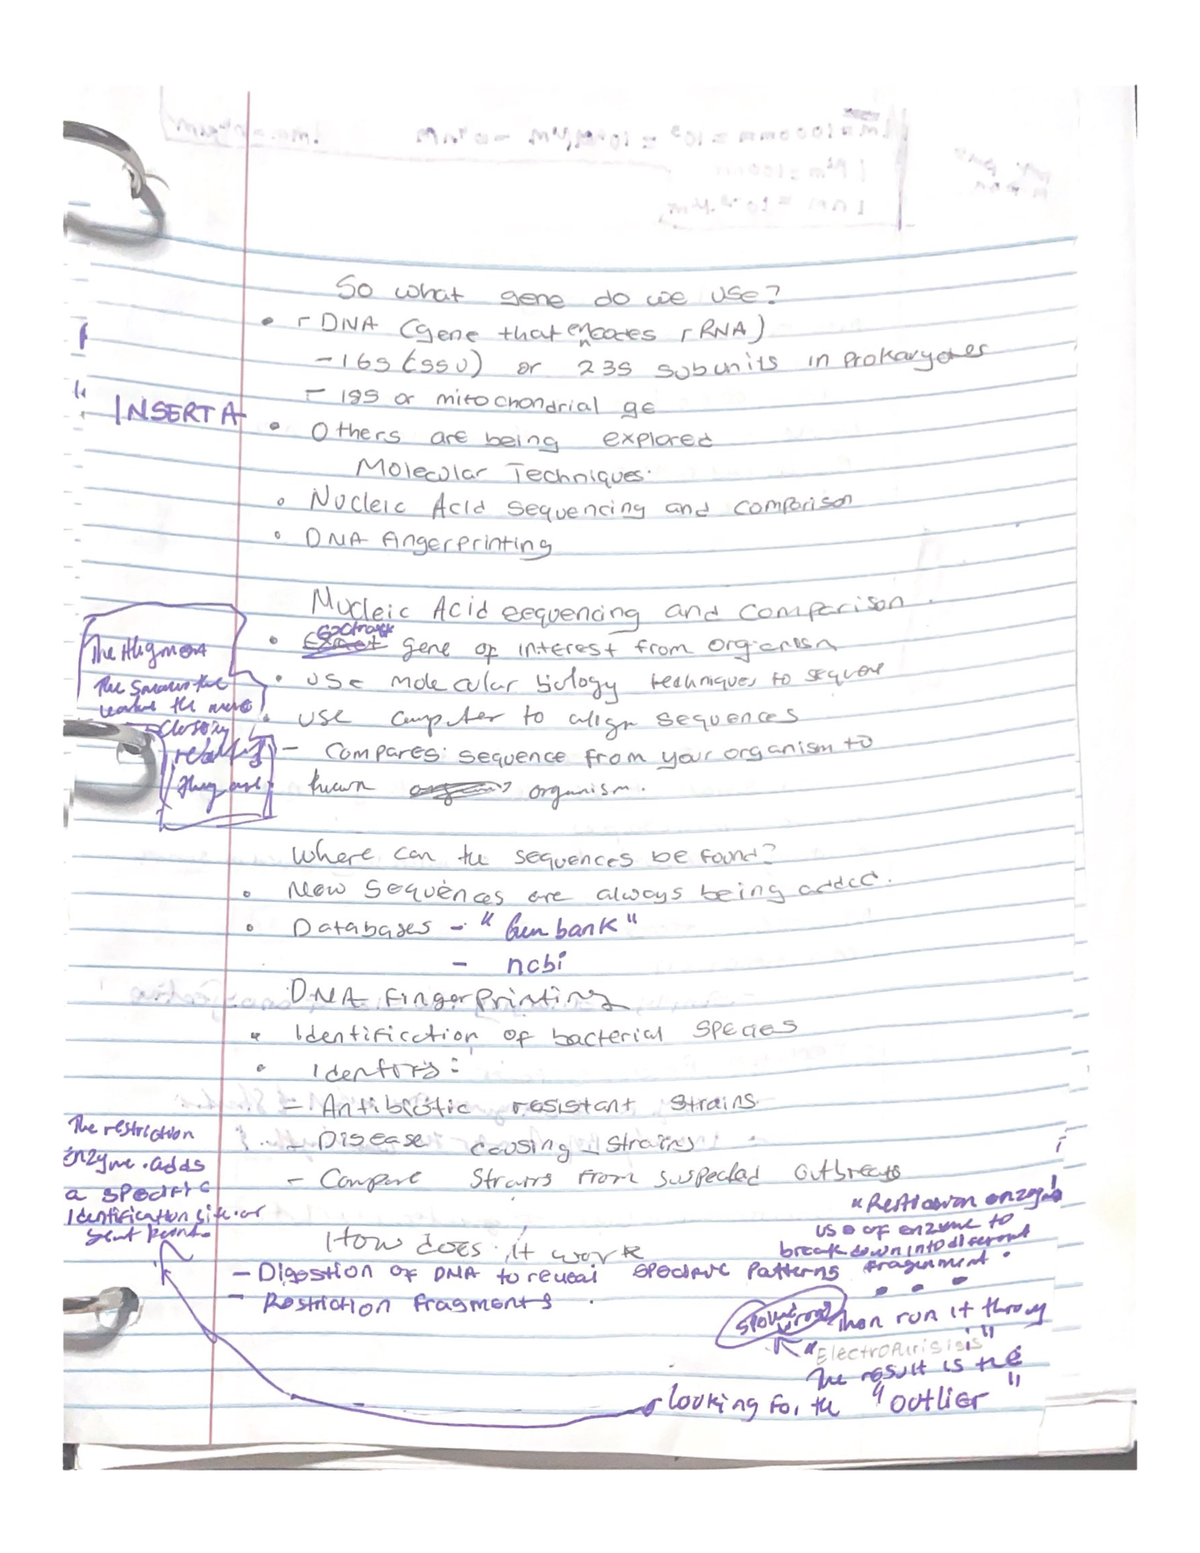 So what gene do we use?
• rDNA (gene that encodes rRNA)
- 16s (SSU) or 23s subunits in Prokaryotes
- 18s or mitochondrial ge
INSERT A
• Others are being explored
Molecular Techniques:
• Nucleic Acid sequencing and comparison
• DNA fingerprinting
Nucleic Acid sequencing and comparison.
• Extract gene of interest from organism
The Alignment
• use molecular biology techniques to sequence
• use computer to align sequences
closely
- Compares sequence from your organism to
known organism.
they are
where can the sequences be found?
• New sequences are always being added.
• Databases - "Genbank"
- ncbi
DNA Fingerprinting
• Identification of bacterial species
• Identify:
- Antibiotic resistant strains
- Disease causing strains
- Compare strains from suspected outbreaks
The restriction
enzyme adds
a specific
Identification site or
How does it work
use of enzyme to
break down into different
fragment
- Digestion of DNA to reveal specific patterns
- Restriction fragments
then run it through
The result is the
looking for the "outlier"